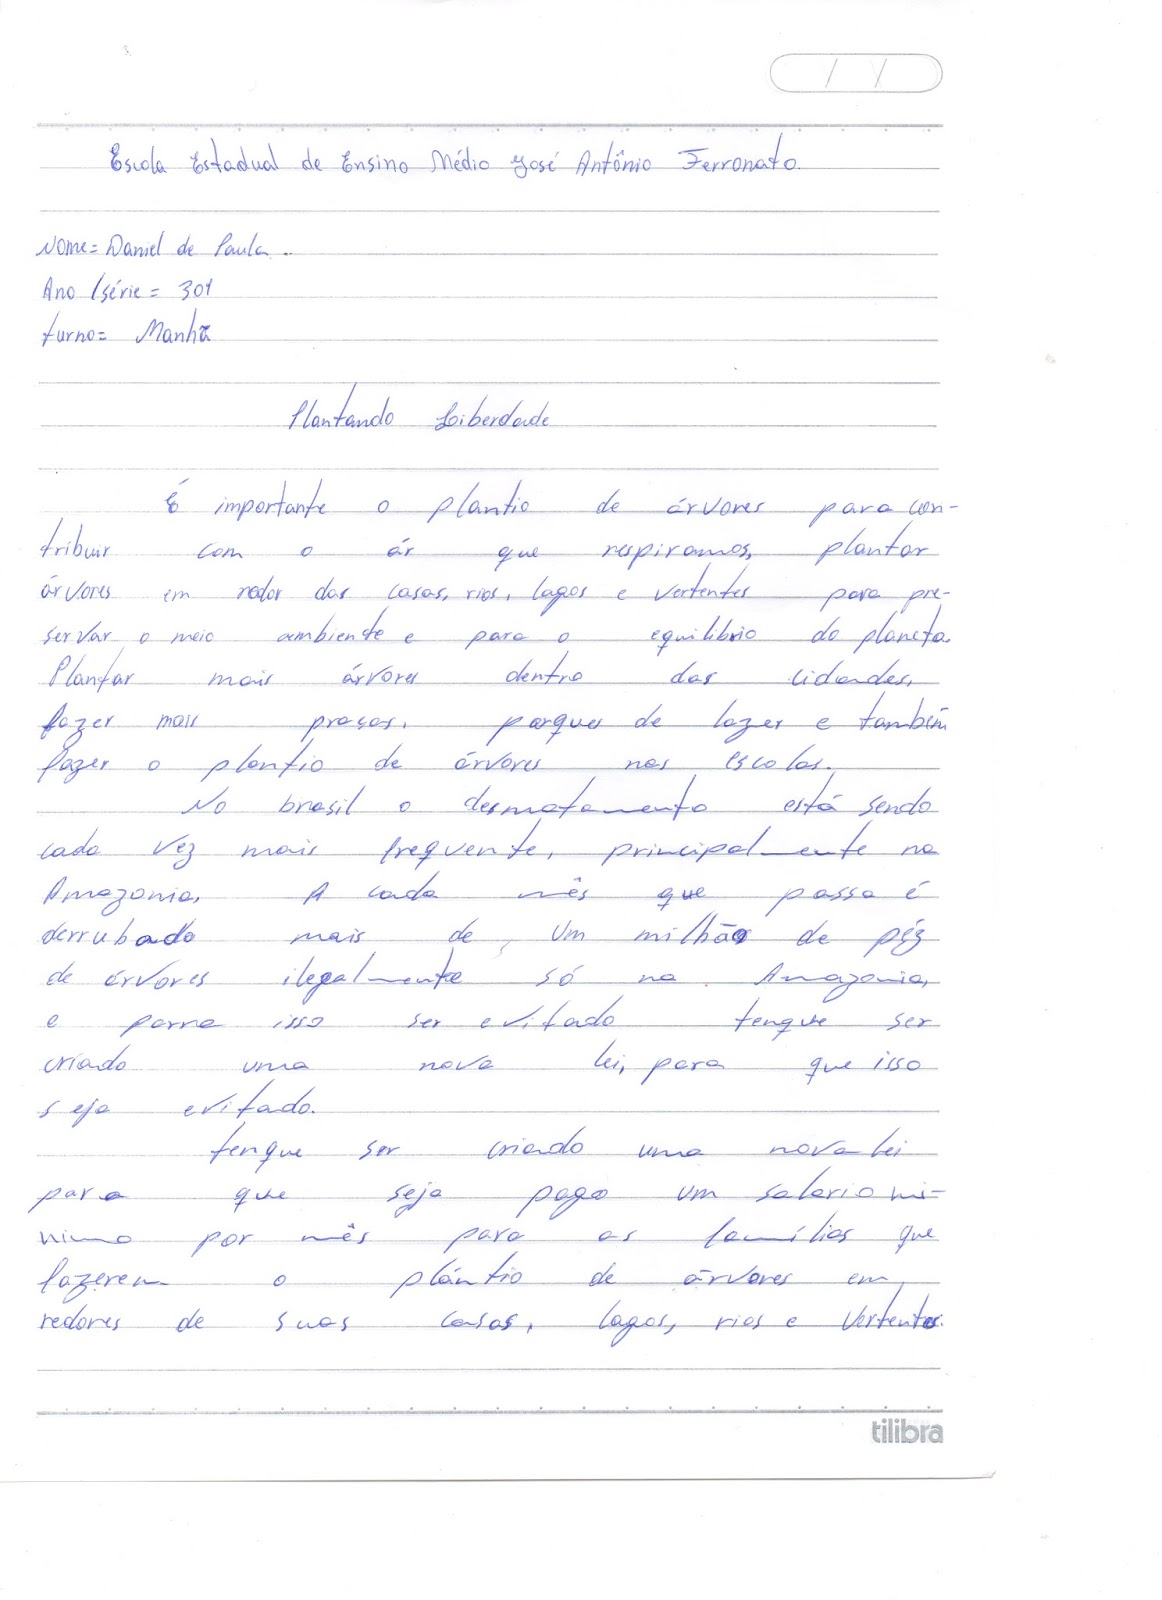 Escola Estadual de Ensino Médio José Antônio Ferronato.
Nome= Daniel de Paula ..
Ano /série = 301
turno= Manhã
Plantando Liberdade
É importante o plantio de árvores para con-
tribuir com o ár que respiramos, plantar
árvores em redor das casas, rios, lagos e vertentes para pre-
servar o meio ambiente e para o equilibrio do planeta.
Plantar mais árvores dentro das cidades,
fazer mais praças, parques de lazer e também
fazer o plantio de árvores nas escolas.
No brasil o desmatamento está sendo
cada vez mais frequente, principalmente na
Amazonia, A cada mês que passa é
derrubado mais de um milhão de péz
de árvores ilegalmente só na Amazonia,
e parra isso ser evitado tenque ser
criado uma nova lei, para que isso
seja evitado.
tenque ser criado uma nova lei
para que seja pago um salario mi-
nimo por mês para as famílias que
fazerem o plántio de árvores em
redores de suas casas, lagos, rios e vertentes.
tilibra